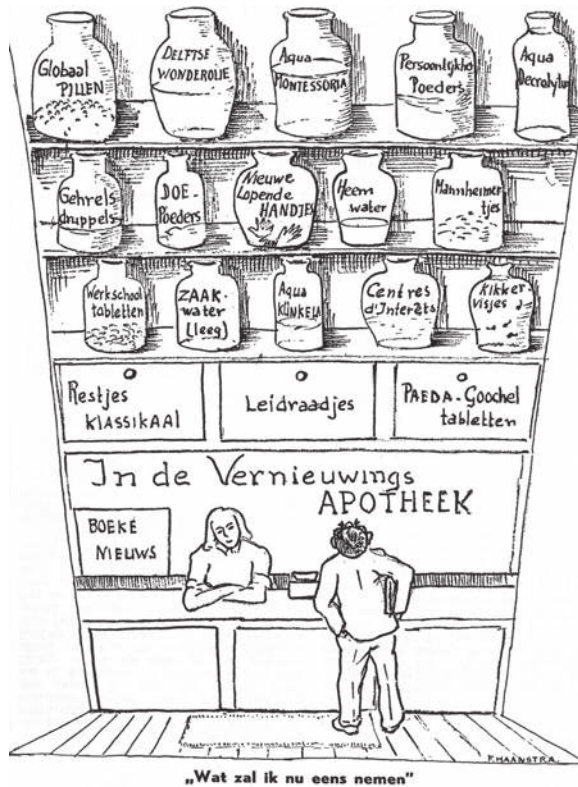 Globaal
PILLEN
DELFTSE
WONDEROLIE
Aqua
MONTESSORIA
Persoonlijkhs
Poeders
Aqua
Decrolyta
Gehrels
druppels
DOE-
Poeders
Nieuwe
Lopende
HANDJES
Heem
water
Mannheimer
tjes
Werkschool
tabletten
ZAAK-
water
(leeg)
Aqua
KÜNKELA
Centres
d'Interêts
Kikker-
visjes
Restjes
KLASSIKAAl
Leidraadjes
PAEDA-Goochel
tabletten
In de Vernieuwings
APOTHEEK
BOEKE
NIEUWS
P. HAANSTRA.
„Wat zal ik nu eens nemen"